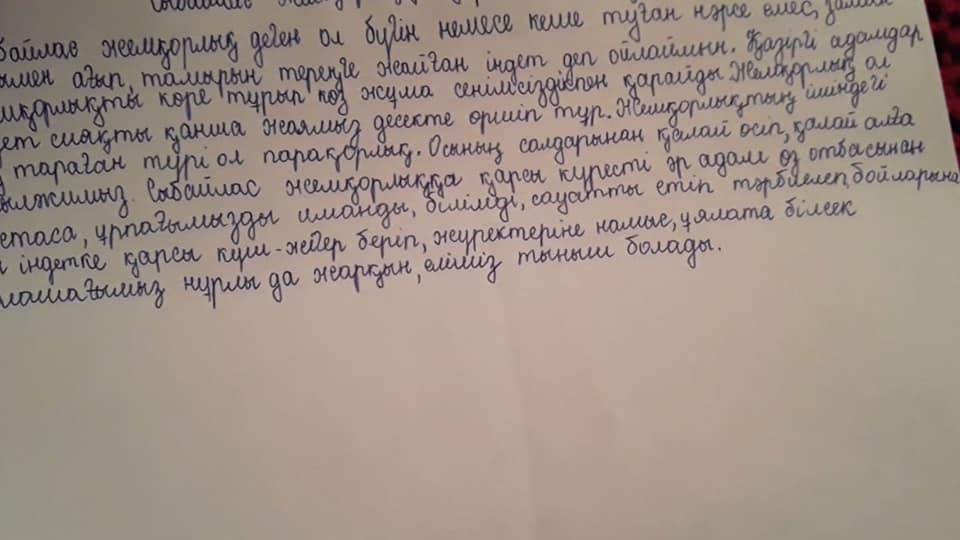 байлас жемқорлық деген ол бүгін немесе кеше туған нәрсе емес,
ымен ағып, тамырын тереңге жайған індет деп ойлаймын. Қазіргі адамдар
мқорлықты көре тұрып көз жұма сенімсіздікпен қарайды Жемқорлық ол
ет сияқты қанша жаямыз десекте өршіп тұр. Жемқорлықтың ішіндегі
тараған түрі ол парақорлық. Осының салдарынан қалай өсіп, қалай алға
ылжимыз. Сыбайлас жемқорлыққа қарсы күресті әр адам өз отбасынан
стаса, ұрпағымызды иманды, білімді, сауатты етіп тәрбиелеп, бойларына
індетке қарсы күш-жігер беріп, жүректеріне намыс, ұялата білсек
лашағымыз нұрлы да жарқын, еліміз тыныш болады.